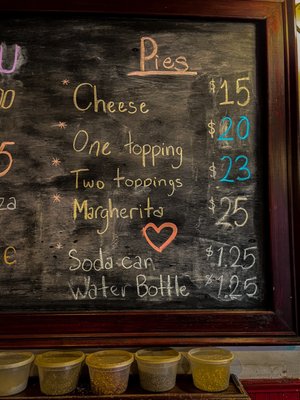 Pies
* Cheese $15
* One topping $20
* Two toppings $23
* Margherita $25
* Soda-can $1.25
Water Bottle $1.25